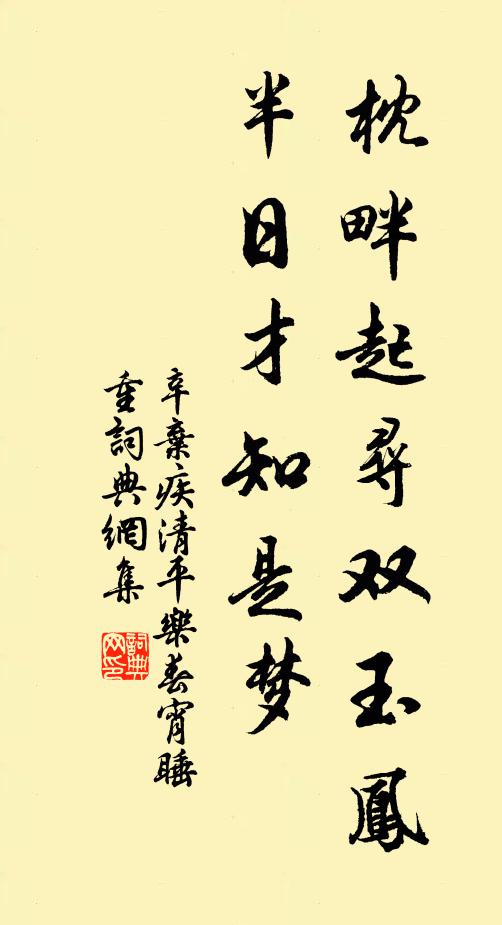 枕畔起尋双玉鳳
半日才知是梦
辛棄疾清平樂春宵睡
重詞典網集
詞典网印